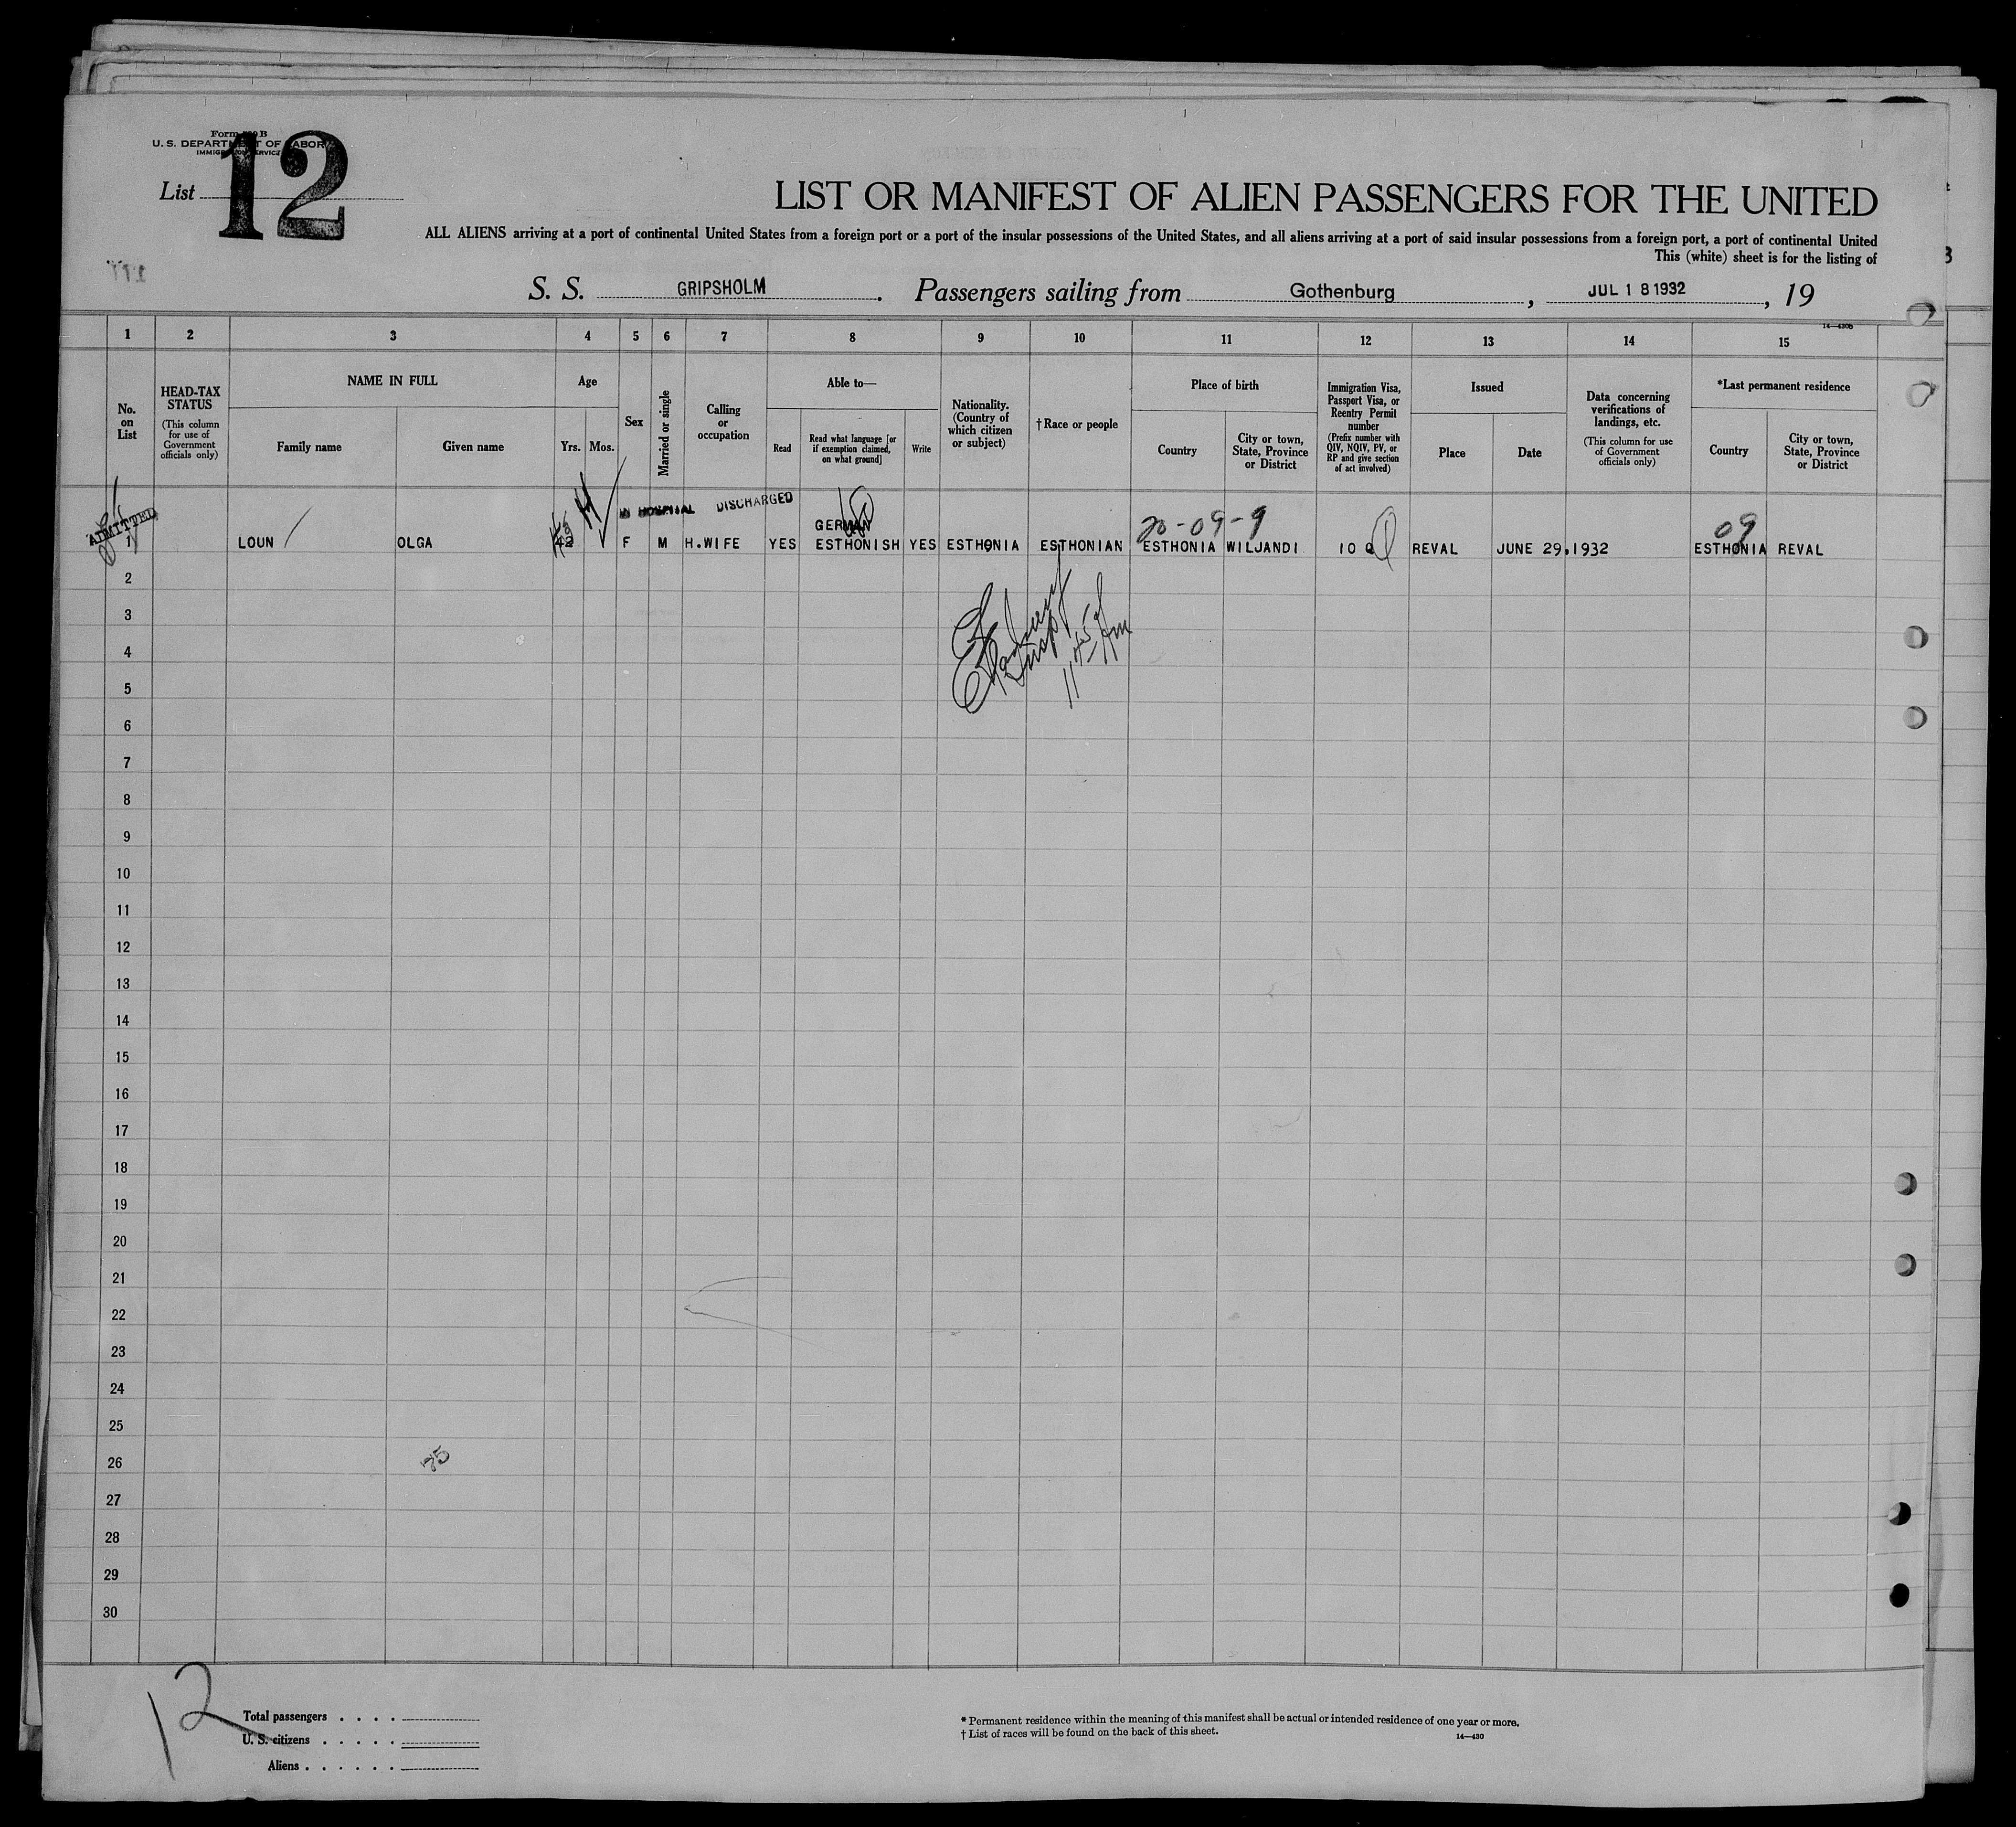 Form B
U. S. DEPARTMENT OF LABOR
IMMIGRATION SERVICE
List 12
LIST OR MANIFEST OF ALIEN PASSENGERS FOR THE UNITED
ALL ALIENS arriving at a port of continental United States from a foreign port or a port of the insular possessions of the United States, and all aliens arriving at a port of said insular possessions from a foreign port, a port of continental United
This (white) sheet is for the listing of
S. S. GRIPSHOLM. Passengers sailing from Gothenburg, JUL 18 1932, 19
14—430b
1 2 3 4 5 6 7 8 9 10 11 12 13 14 15
No. on List
HEAD-TAX STATUS
(This column for use of Government officials only)
NAME IN FULL
Family name Given name
Age
Yrs. Mos.
Sex
Married or single
Calling or occupation
Able to—
Read
Read what language [or if exemption claimed, on what ground]
Write
Nationality. (Country of which citizen or subject)
†Race or people
Place of birth
Country
City or town, State, Province or District
Immigration Visa, Passport Visa, or Reentry Permit number
(Prefix number with QIV, NQIV, PV, or RP and give section of act involved)
Issued
Place Date
Data concerning verifications of landings, etc.
(This column for use of Government officials only)
*Last permanent residence
Country
City or town, State, Province or District
ADMITTED
IN HOSPITAL DISCHARGED
20-09-9
09
GERMAN
1 LOUN OLGA 42 F M H.WIFE YES ESTHONISH YES ESTHONIA ESTHONIAN ESTHONIA WILJANDI 10 Q REVAL JUNE 29,1932 ESTHONIA REVAL
2
3
4
11 45 Am
5
6
7
8
9
10
11
12
13
14
15
16
17
18
19
20
21
22
23
24
25
26
27
28
29
30
12
Total passengers . . . .
U. S. citizens . . . . .
Aliens . . . . . .
* Permanent residence within the meaning of this manifest shall be actual or intended residence of one year or more.
† List of races will be found on the back of this sheet.
14—430